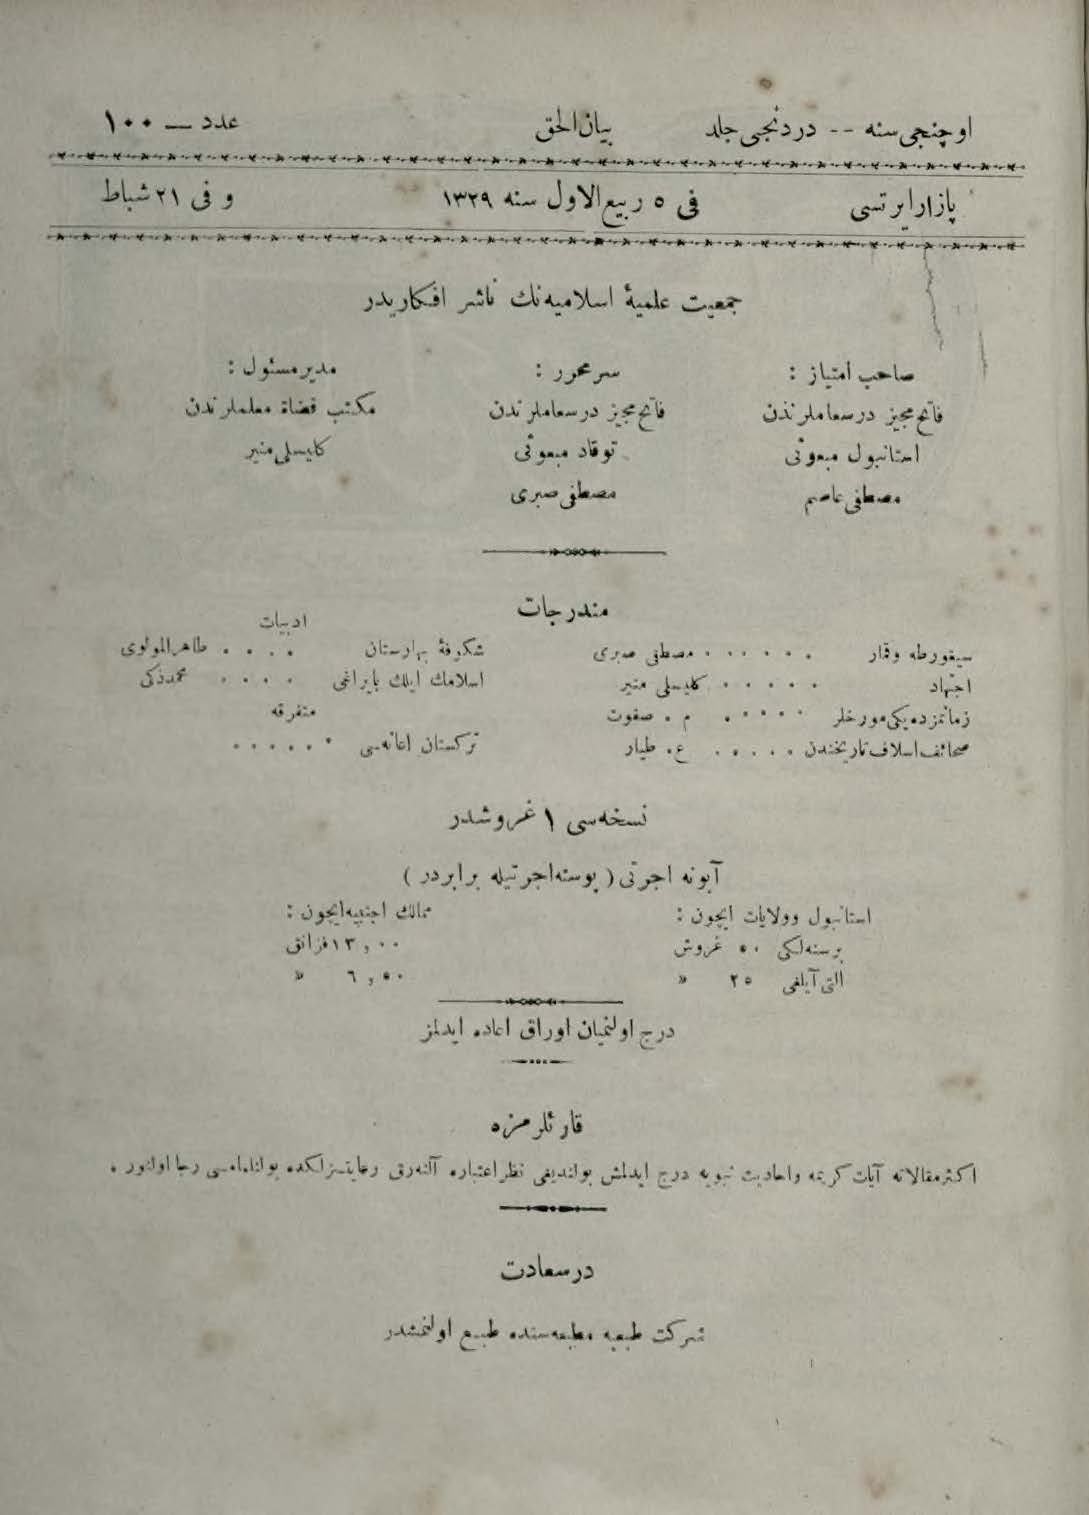 اوچنجی سنه -- دردنجی جلد بیان الحق عدد — ١٠٠
پازار ایرتسی فی ٥ ربیع الاول سنه ١٣٢٩ و فی ٢١ شباط
جمعیت علمیۀ اسلامیه نك ناشر افكاریدر
صاحب امتیاز :
فاتح مجیز درسعاملرندن
استانبول مبعوثی
مصطفی عاصم
سر محرر :
فاتح مجیز درسعاملرندن
توقاد مبعوثی
مصطفی صبری
مدیر مسئول :
مكتب قضاة معلملرندن
كلیسلی منیر
مندرجات
سیغورطه وقمار . . . . . . مصطفی صبری
اجتهاد . . . . . كلیسلی منیر
زمانمزده یكی مورخلر . . . . . م . صفوت
صحائف اسلاف تاریخندن . . . . . ع . طیار
ادبیات
شكوفۀ بهارستان . . . . طاهر المولوی
اسلامك ایلك بایراغی . . . . محمد ذكی
متفرقه
تركستان اعانه سی . . . . . .
نسخه سی ١ غروشدر
آبونه اجرتی ( پوسته اجرتیله برابردر )
استانبول وولایات ایچون :
برسنه لكی ٥٠ غروش
التی آیلغی ٢٥ »
ممالك اجنبیه ایچون :
١٣,٠٠ فرانق
٦,٥٠ »
درج اولنمیان اوراق اعاده ایدلمز
قارئلرمزه
اكثر مقالاته آیات كریمه واحادیث نبویه درج ایدلمش بولندیغی نظر اعتباره آلنه رق رعایتسزلكده بولنلمامسی رجا اولنور .
درسعادت
شركت طبعیه مطبعه سنده طبع اولنمشدر